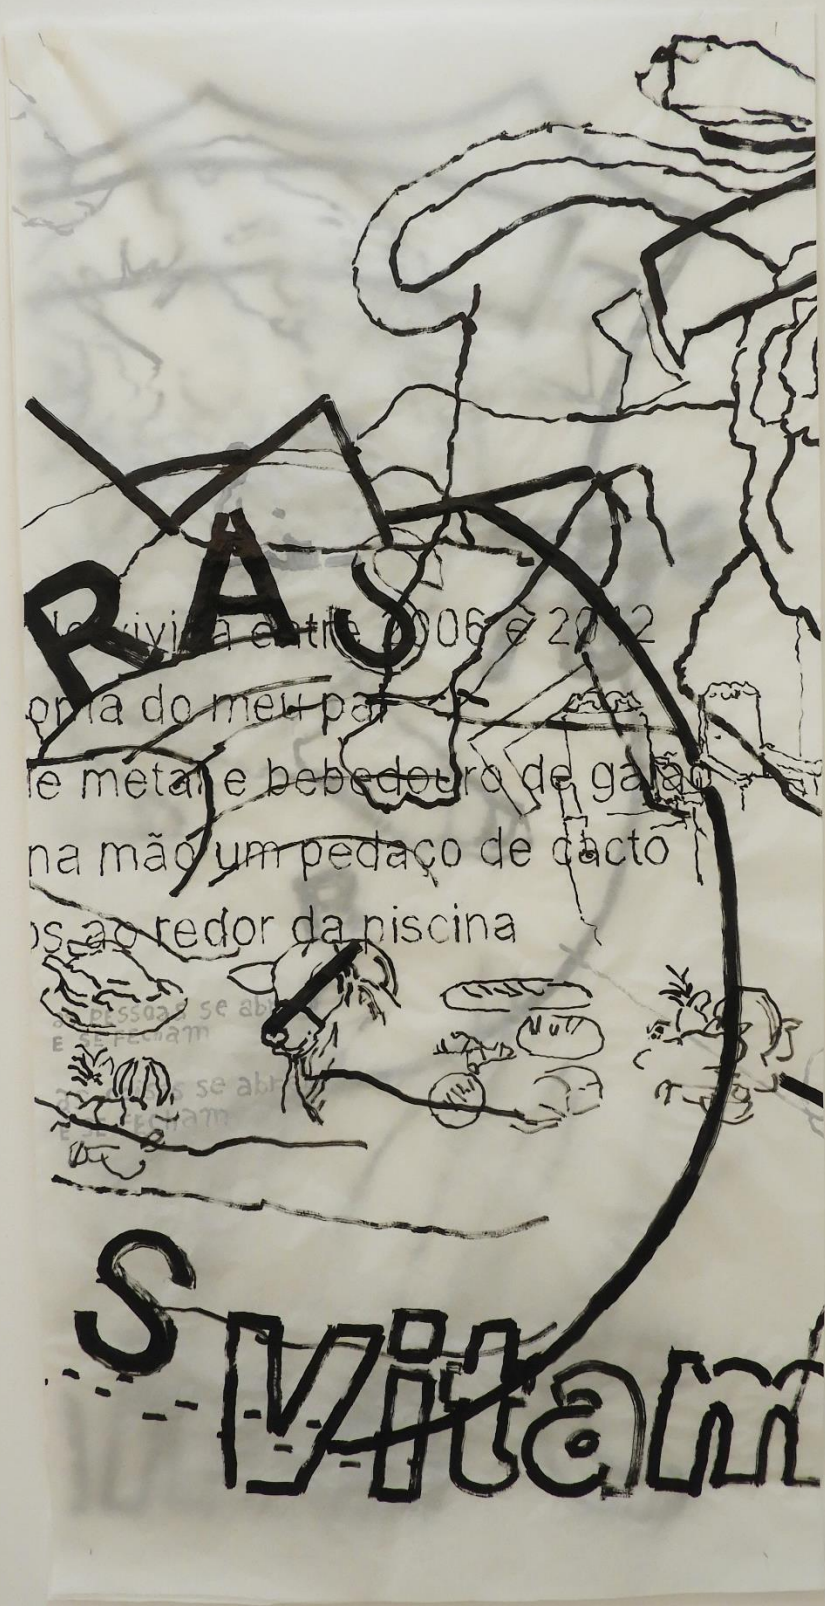 RAS
vivida entre 2006 e 2012
do meu pai
metal e bebedouro de galão
na mão um pedaço de cacto
ao redor da piscina
pessoas se
E SE FECHAM
se abr
E SE FECHAM
S
Vitam